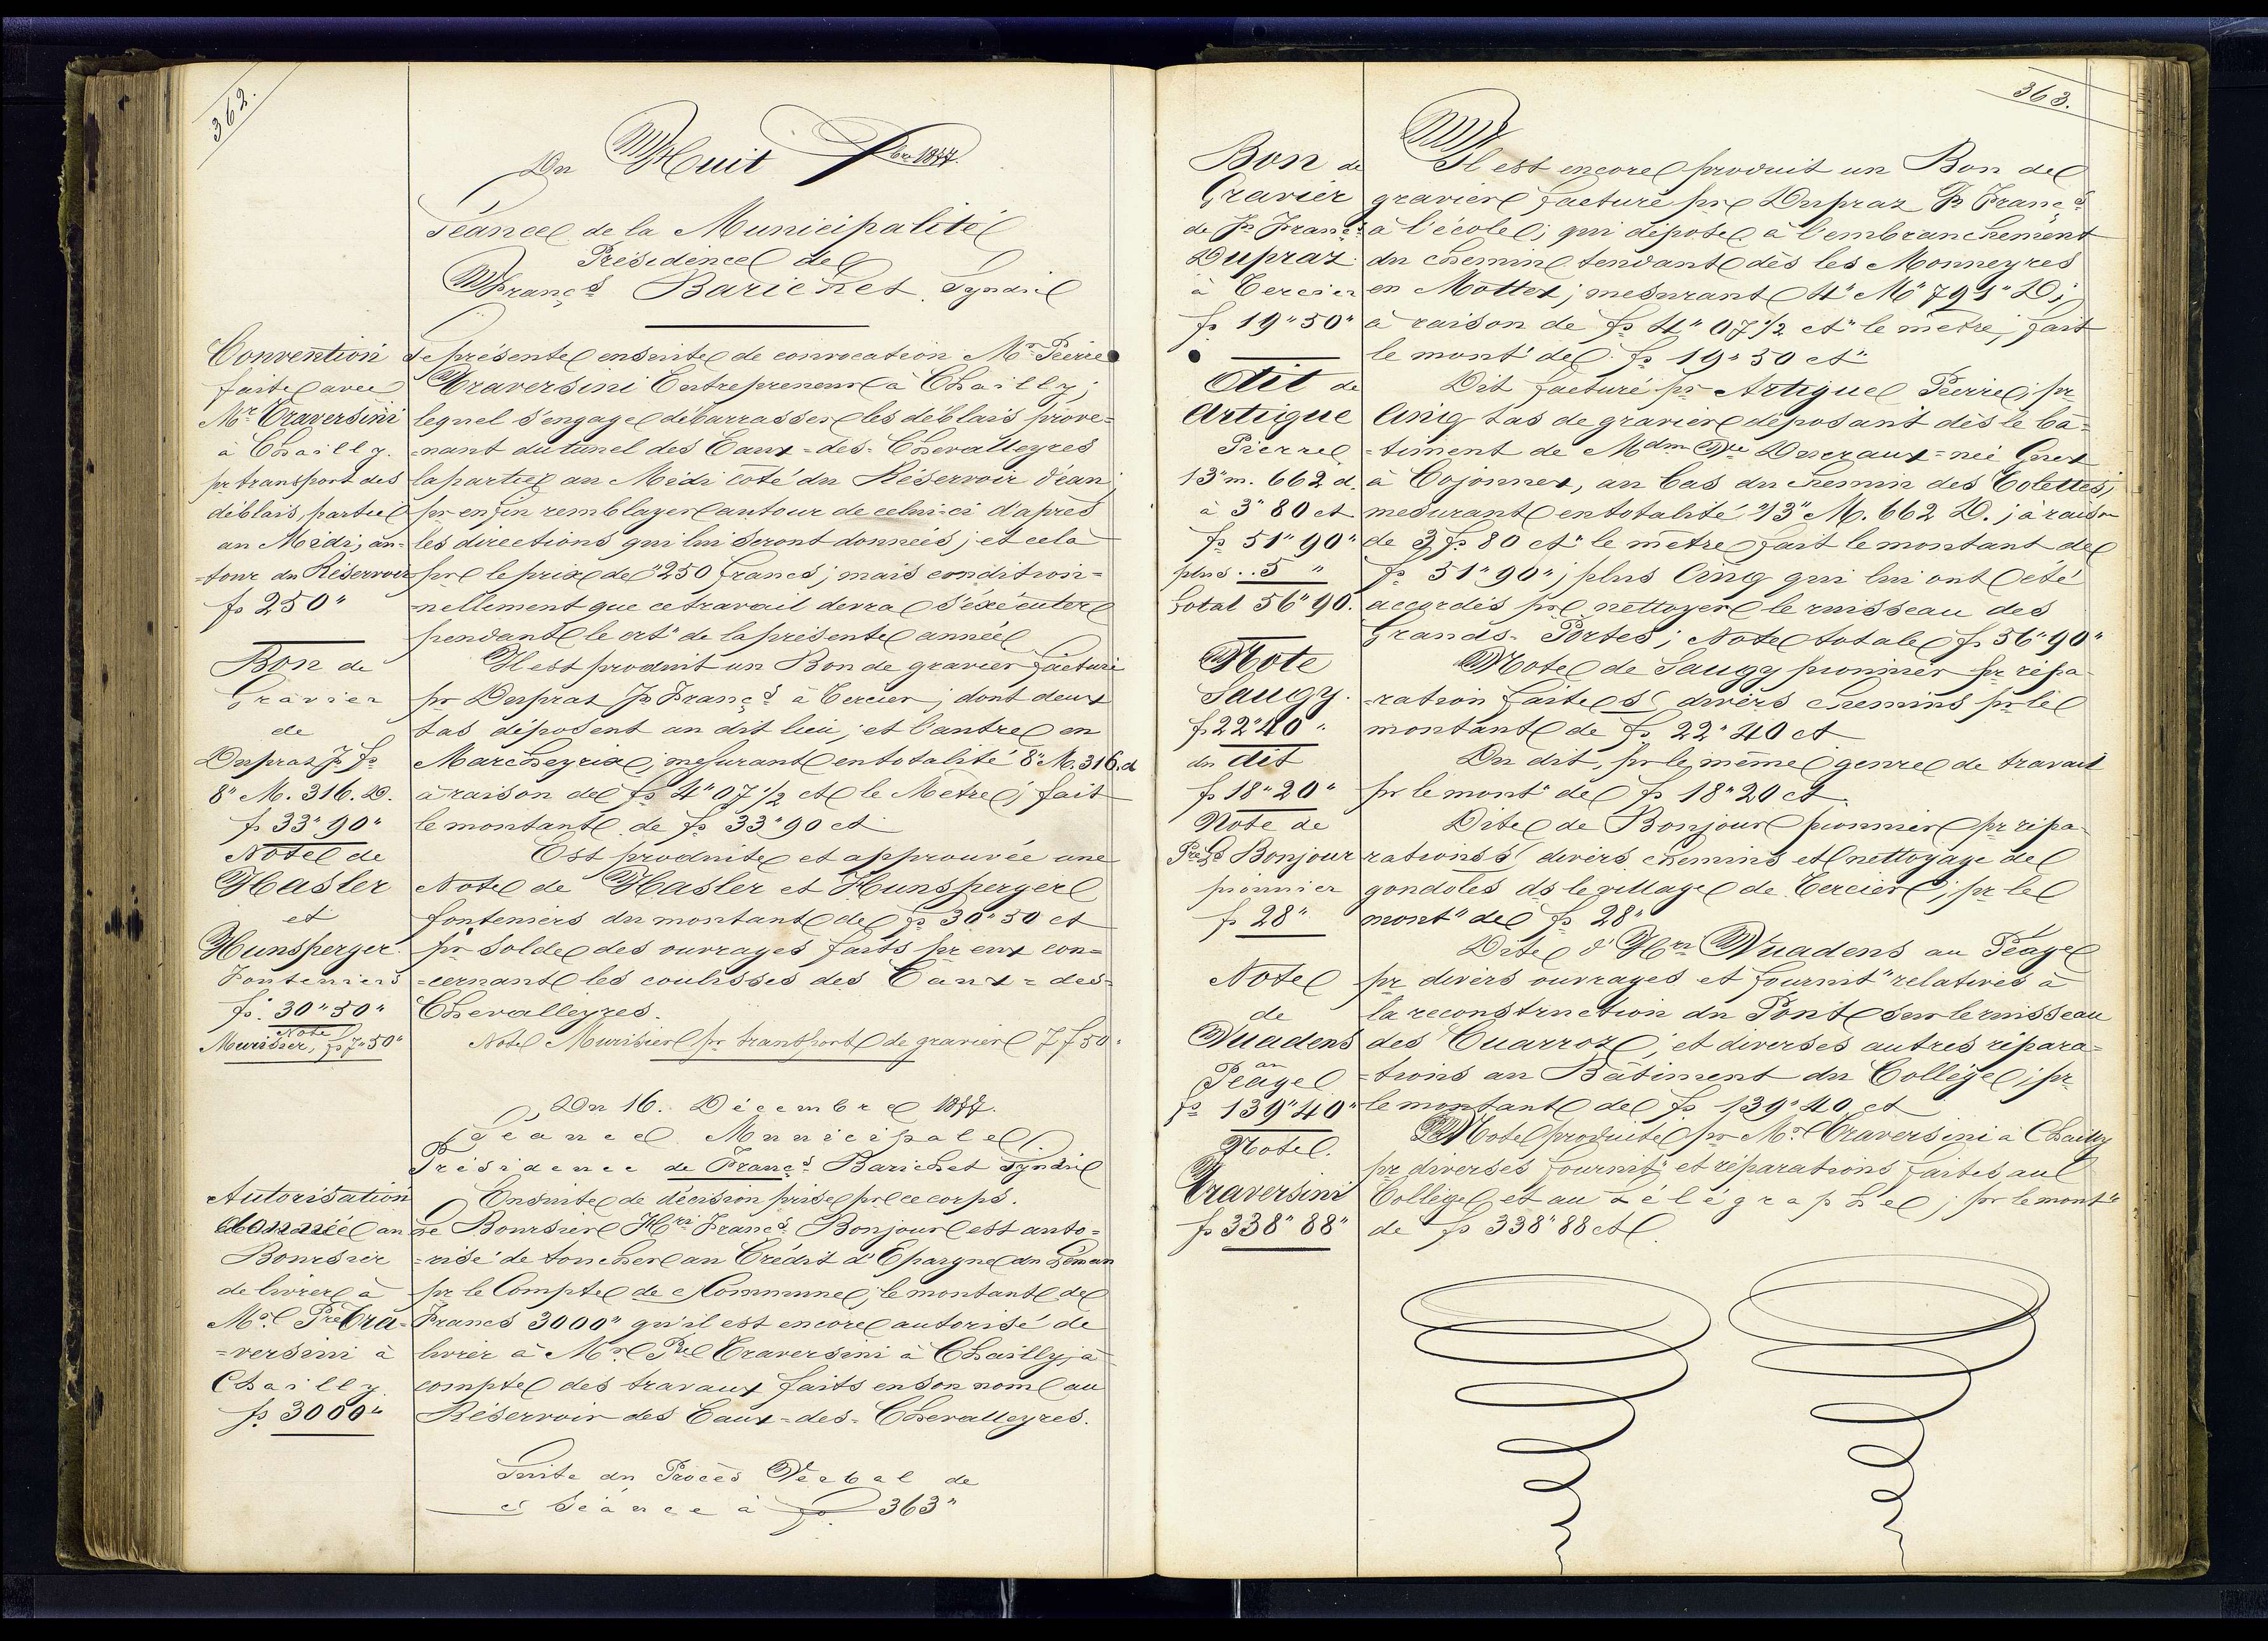 362.
Du Huit Xbre 1877.
Séance de la Municipalité
Présidence de
Franç.s Barichet, Syndic
Convention
faite avec
Mr. Traversini
à Chailly.
pr transport des
déblais, partie
au Midi, au-
=tour du Réservoir
fs 250"
Se présente ensuite de convocation Mr. Pierre
Traversini Entrepreneur à Chailly;
lequel s'engage débarrasser les déblais prove=
=nant du tunel des Eaux=des=Chevalleyres
la partie au Midi coté du Réservoir d'eau;
pr enfin remblayer autour de celui-ci d'après
les directions qui lui seront données; et cela
pr le prix de "250 francs; mais condition=
=nellement que ce travail devra s'éxécuter
pendant le crt" de la présente année
Bon de
Gravier
de
Dupraz Js fs
8" M. 316. D.
fs 33"90"
Il est produit un Bon de gravier facturé
pr Dupraz Js Franç.s à Tercier; dont deux
tas déposent au dit lieu; et l'autre en
Marcheyria; mesurant en totalité 8" M. 316. d
à raison de fs 4"07 1/2 ct le Mètre; fait
le montant de fs 33"90 ct
Note de
Hasler
et
Hunsperger
Fonteniers
fs. 30"50"
Est produite et approuvée une
Note de Hasler et Hunsperger
fonteniers du montant de fs 30"50 ct
pr solde des ouvrages faits pr eux con=
=cernant les coulisses des Eaux=des=
Chevalleyres.
Note
Murisier, fs 7"50"
Note Murisier pr transport de gravier 7 f 50"
Du 16. Décembre 1877.
Séance Municipale
Présidence de Franç.s Barichet Syndic
Autorisation
donnée au
Boursier
de livrer à
Mr. Pre Tra=
=versini à
Chailly
fs 3000"
Ensuite de décision prise pr ce corps.
Le Boursier Hri Franç.s Bonjour est auto=
=risé de toucher au Crédit d'Epargne du Léman
pr le Compte de Commune; le montant de
Francs 3000" qu'il est encore autorisé de
livrer à Mr. Pre Traversini à Chailly; à
compte des travaux faits en son nom au
Réservoir des Eaux=des=Chevalleyres.
Suite du Procès Verbal de
ct Séance à fo 363"
363.
Bon de
Gravier
de Js Franç.s
Dupraz
à Tercier
fs 19"50"
Il est encore produit un Bon de
gravier facturé pr Dupraz Js Franç.s
à l'école; qui dépose à l'embranchement
du chemin tendant dès les Monneyres
en Mottex; mesurant 4" M" 791" D;
à raison de fs 4"07 1/2 ct" le mètre; fait
le mont" de fs 19"50 ct"
dit de
Artigue
Pierre
13"m. 662 d.
à 3"80 ct
fs 51"90"
plus..5 "
total 56"90.
Dit facturé pr Artigue Pierre; pr
Cinq tas de gravier déposant dès le bâ=
=timent de Mdme Vve Ducraux=née Guex
à Cojonnex, au bas du chemin des Colettes;
mesurant en totalité "13" M. 662 D.; à raison
de 3 fs 80 ct" le mètre fait le montant de
fs 51"90"; plus Cinq qui lui ont été
accordés pr nettoyer le ruisseau des
Grands-Portes; Note totale fs 56"90"
Note
Saugy.
fs 22"40"
Note de Saugy pionnier pr répa=
=ration faite s/ divers chemins pr le
montant de fs 22"40 ct
du dit
fs 18"20"
Du dit, pr le même genre de travail
pr le mont" de fs 18"20 ct.
Note de
Bonjour
pionnier
fs 28"
Dite de Bonjour pionnier pr répa=
rations s/ divers chemins et nettoyage de
gondoles ds le village de Tercier; pr le
mont" de fs 28"
Note
de
Vuadens
au
Péage
fs 139"40"
Dite d'Hri Vuadens au Péage
pr divers ouvrages et fournit" relatives à
la reconstruction du Pont sur le ruisseau
des Cuarroz; et diverses autres répara=
=tions au Bâtiment du Collège; pr
le montant de fs 139"40 ct
Note.
Traversini
fs 338"88"
Note produite pr Mr. Traversini à Chailly
pr diverses fournit" et réparations faites au
Collège et au Télégraphe; pr le mont"
de fs 338"88 ct.